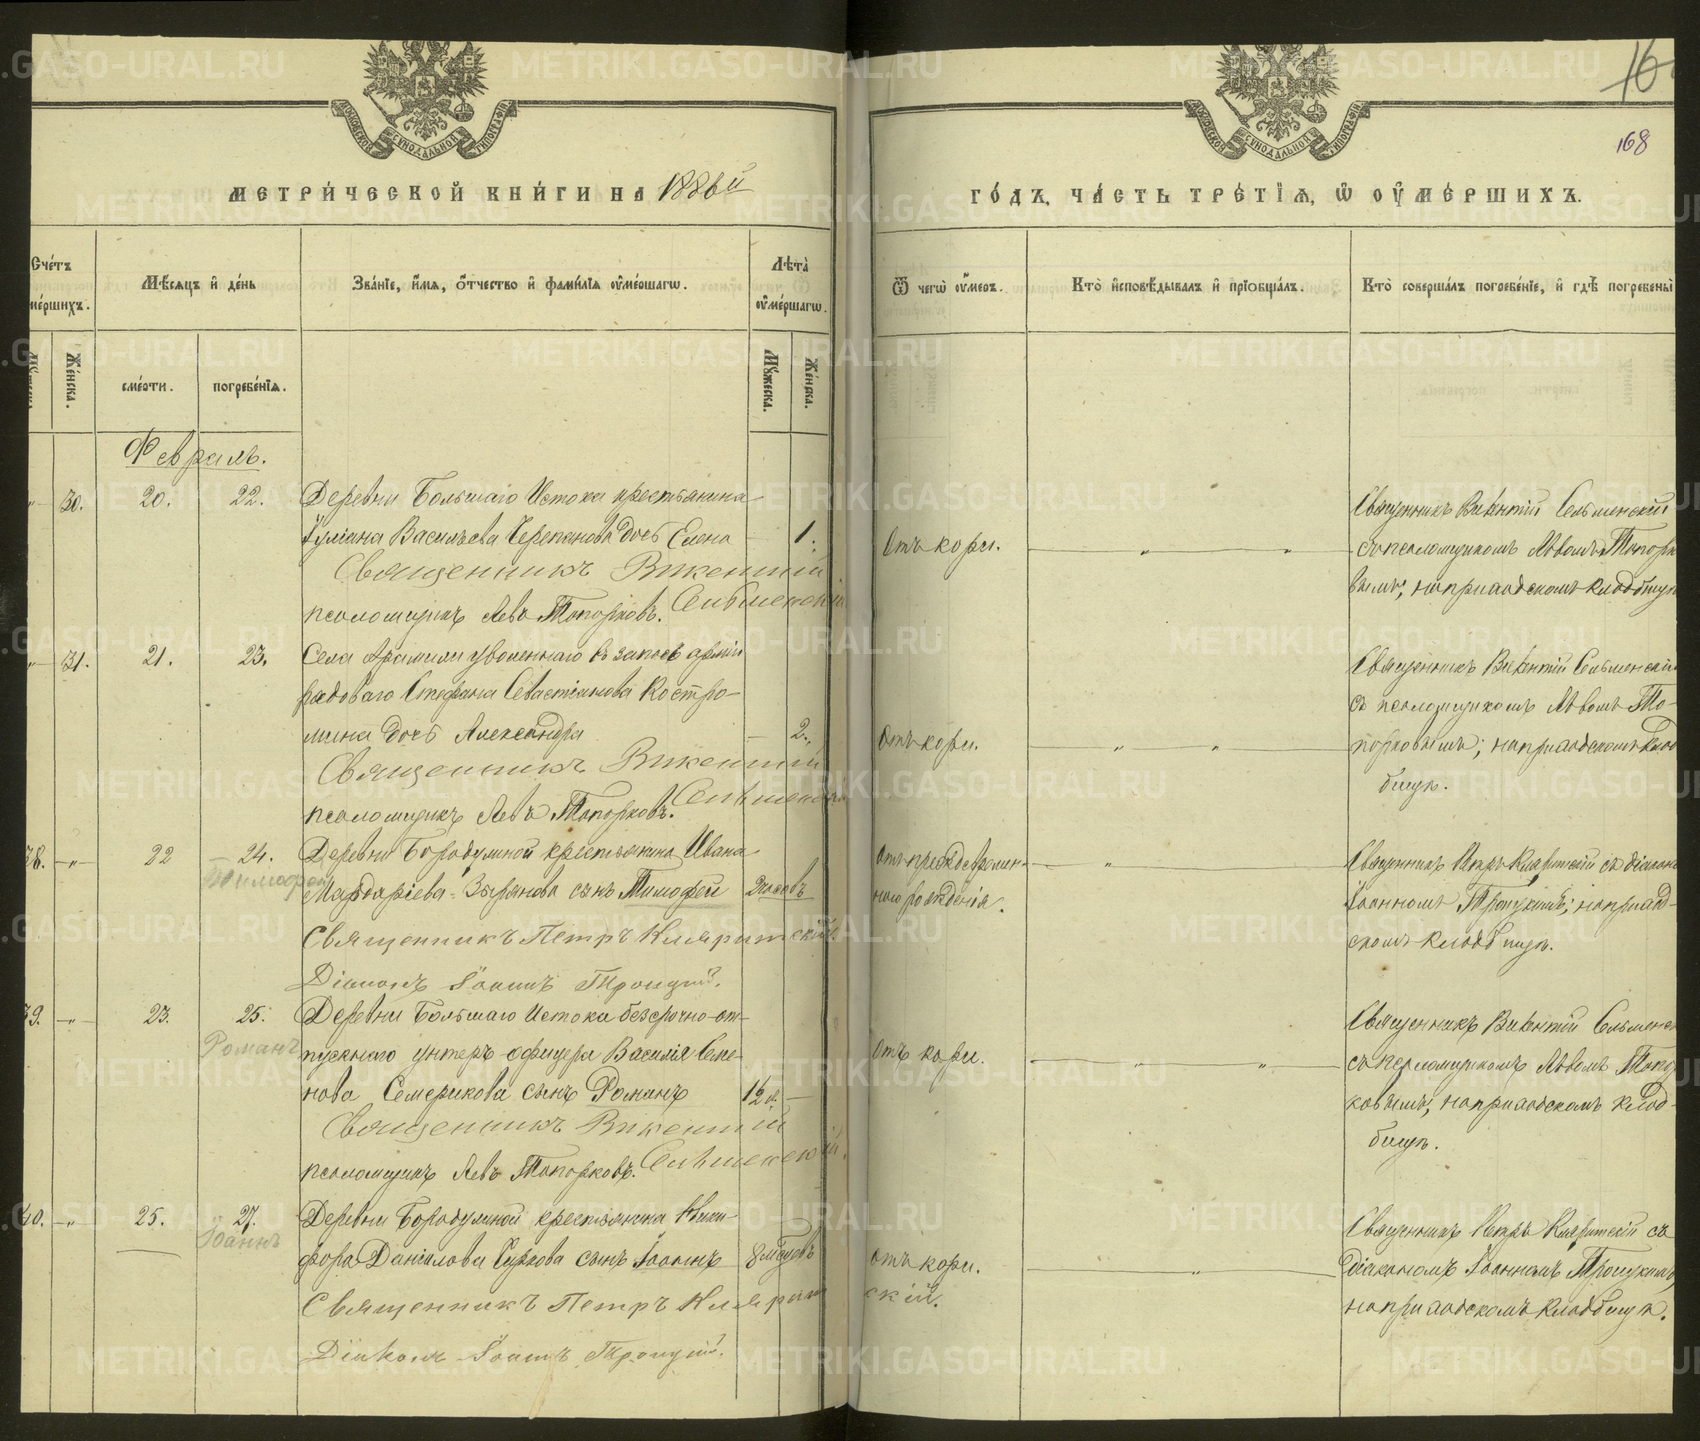 МЕТРИ́ЧЕСКОЙ КНИ́ГИ НА 1886й
ГО́ДЪ, ЧА́СТЬ ТРЕ́ТІЯ, Ѡ ОУМЕ́РШИХЪ.
168
Сче́тъ
ме́ршихъ.
Мѣ́сяцъ и де́нь
Зва́ніе, и́мя, о́тчество и фами́лія оуме́ршагѡ.
Лѣта̀
оуме́ршагѡ.
Ѿ чегѡ̀ оу́меръ.
Кто̀ исповѣ́дывалъ и пріобща́лъ.
Кто̀ соверша́лъ погребе́ніе, и гдѣ̀ погребены̀
Же́нска.
сме́рти.
погребе́нія.
Му́жеска.
Же́нска.
Февраль.
„ 30. 20. 22. Деревни Большаго Истока крестьянина
Іуліана Васильева Черепанова дочь Елена 1.
Священникъ Викентий
псаломщикъ Левъ Топорковъ. Сельменский
Отъ кори. „ „
Священникъ Викентій Сельменскій
съ псаломщикомъ Львомъ Топорко
вымъ; на приходскомъ кладбищѣ
„ 31. 21. 23. Села Арамили уволеннаго въ запасъ арміи
рядоваго Стефана Севастіанова Костро-
мина дочь Александра 2.
Священникъ Викентий
псаломщикъ Левъ Топорковъ. Сельменский
Отъ кори. „ „
Священникъ Викентій Сельменскій
съ псаломщикомъ Львомъ То-
порковымъ; на приходскомъ клад
бищѣ.
38. „ 22 24. Деревни Бородулиной крестьянина Ивана
Тимофей
Мардаріева Зырянова сынъ Тимофей часовъ
Священникъ Петръ Кляритский
Діаконъ Іоаннъ Троицкій.
Отъ преждевремен-
наго рожденія. „
Священникъ Петръ Кляритскій съ діаконо
Іоанномъ Троицкимъ; на приход-
скомъ кладбищѣ.
39. „ 23. 25. Деревни Большаго Истока безсрочно-от-
Романъ
пускнаго унтеръ-офицера Василія Семе-
нова Семерикова сынъ Романъ 12
Священникъ Викентий
псаломщикъ Левъ Топорковъ. Сельменский.
Отъ кори. „ „
Священникъ Викентій Сельменск
съ псаломщикомъ Львомъ Топор
ковымъ; на приходскомъ клад-
бищѣ.
40. „ 25. 27. Деревни Бородулиной крестьянина Ники-
Іоаннъ
фора Данилова Суркова сынъ Іоаннъ 8 месяцевъ
Священникъ Петръ Кляритский.
Діаконъ Іоаннъ Троицкій.
Отъ кори. „
Священникъ Петръ Кляритскій съ
діакономъ Іоанномъ Троицкимъ;
на приходскомъ кладбищѣ.